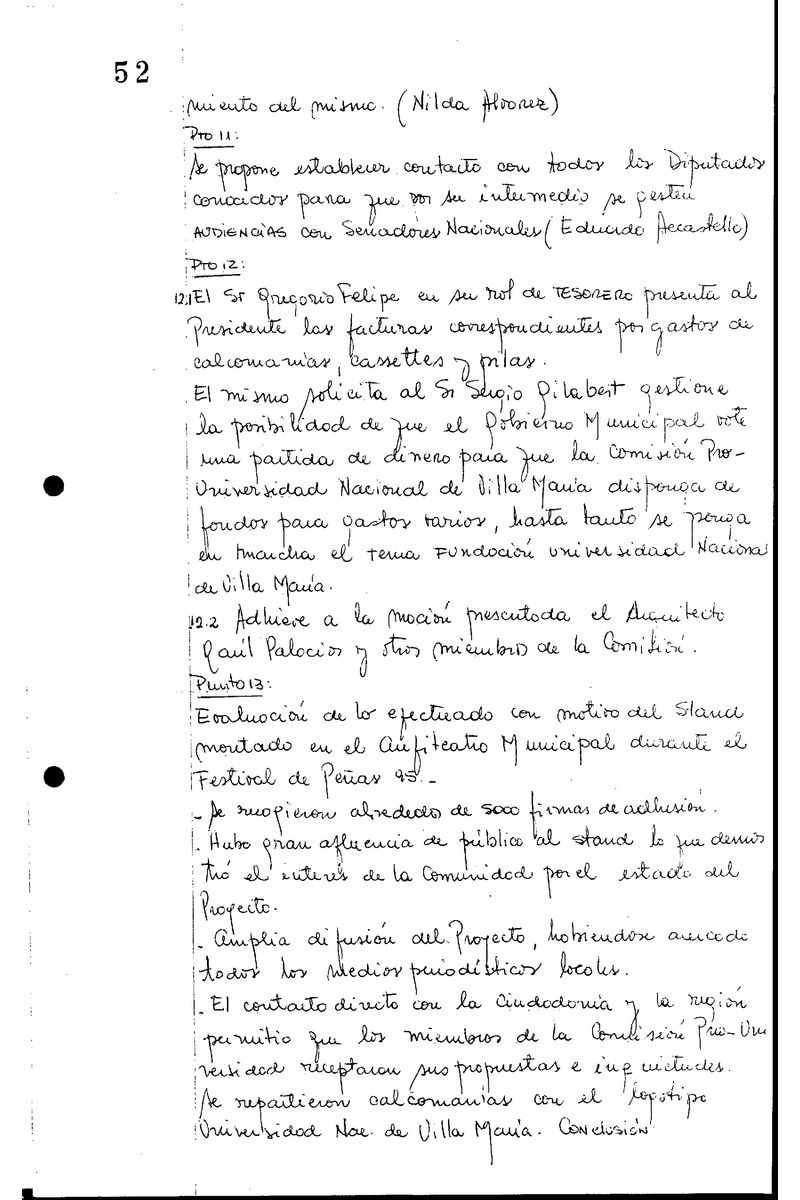 52
miento del mismo. (Nilda Alvarez)
Pto 11:
Se propone establecer contacto con todos los Diputados
conocidos para que por su intermedio se gesten
AUDIENCIAS con Senadores Nacionales (Eduardo Accastello)
Pto 12:
12.1 El Sr Gregorio Felipe en su rol de TESORERO presenta al
Presidente las facturas correspondientes por gastos de
calcomanías, cassettes y pilas.
El mismo solicita al Sr Sergio Gilabert gestione
la posibilidad de que el Gobierno Municipal vote
una partida de dinero para que la Comisión Pro-
Universidad Nacional de Villa María disponga de
fondos para gastos varios, hasta tanto se ponga
en marcha el tema FUNDACIÓN Universidad Naciona
de Villa María.
12.2 Adhiere a la moción presentada el Arquitecto
Raúl Palacios y otros miembros de la Comisión.
Punto 13:
Evaluación de lo efectuado con motivo del Stand
montado en el Anfiteatro Municipal durante el
Festival de Peñas 95.-
- Se recogieron alrededor de 5000 firmas de adhesión.
- Hubo gran afluencia de público al stand lo que demos
tró el interés de la Comunidad por el estado del
Proyecto.
- Amplia difusión del Proyecto, habiéndose acercado
todos los medios periodísticos locales.
- El contacto directo con la Ciudadanía y la región
permitió que los miembros de la Comisión Pro-Uni
versidad receptaran sus propuestas e inquietudes.
Se repartieron calcomanías con el logotipo
Universidad Nac. de Villa María. Conclusión